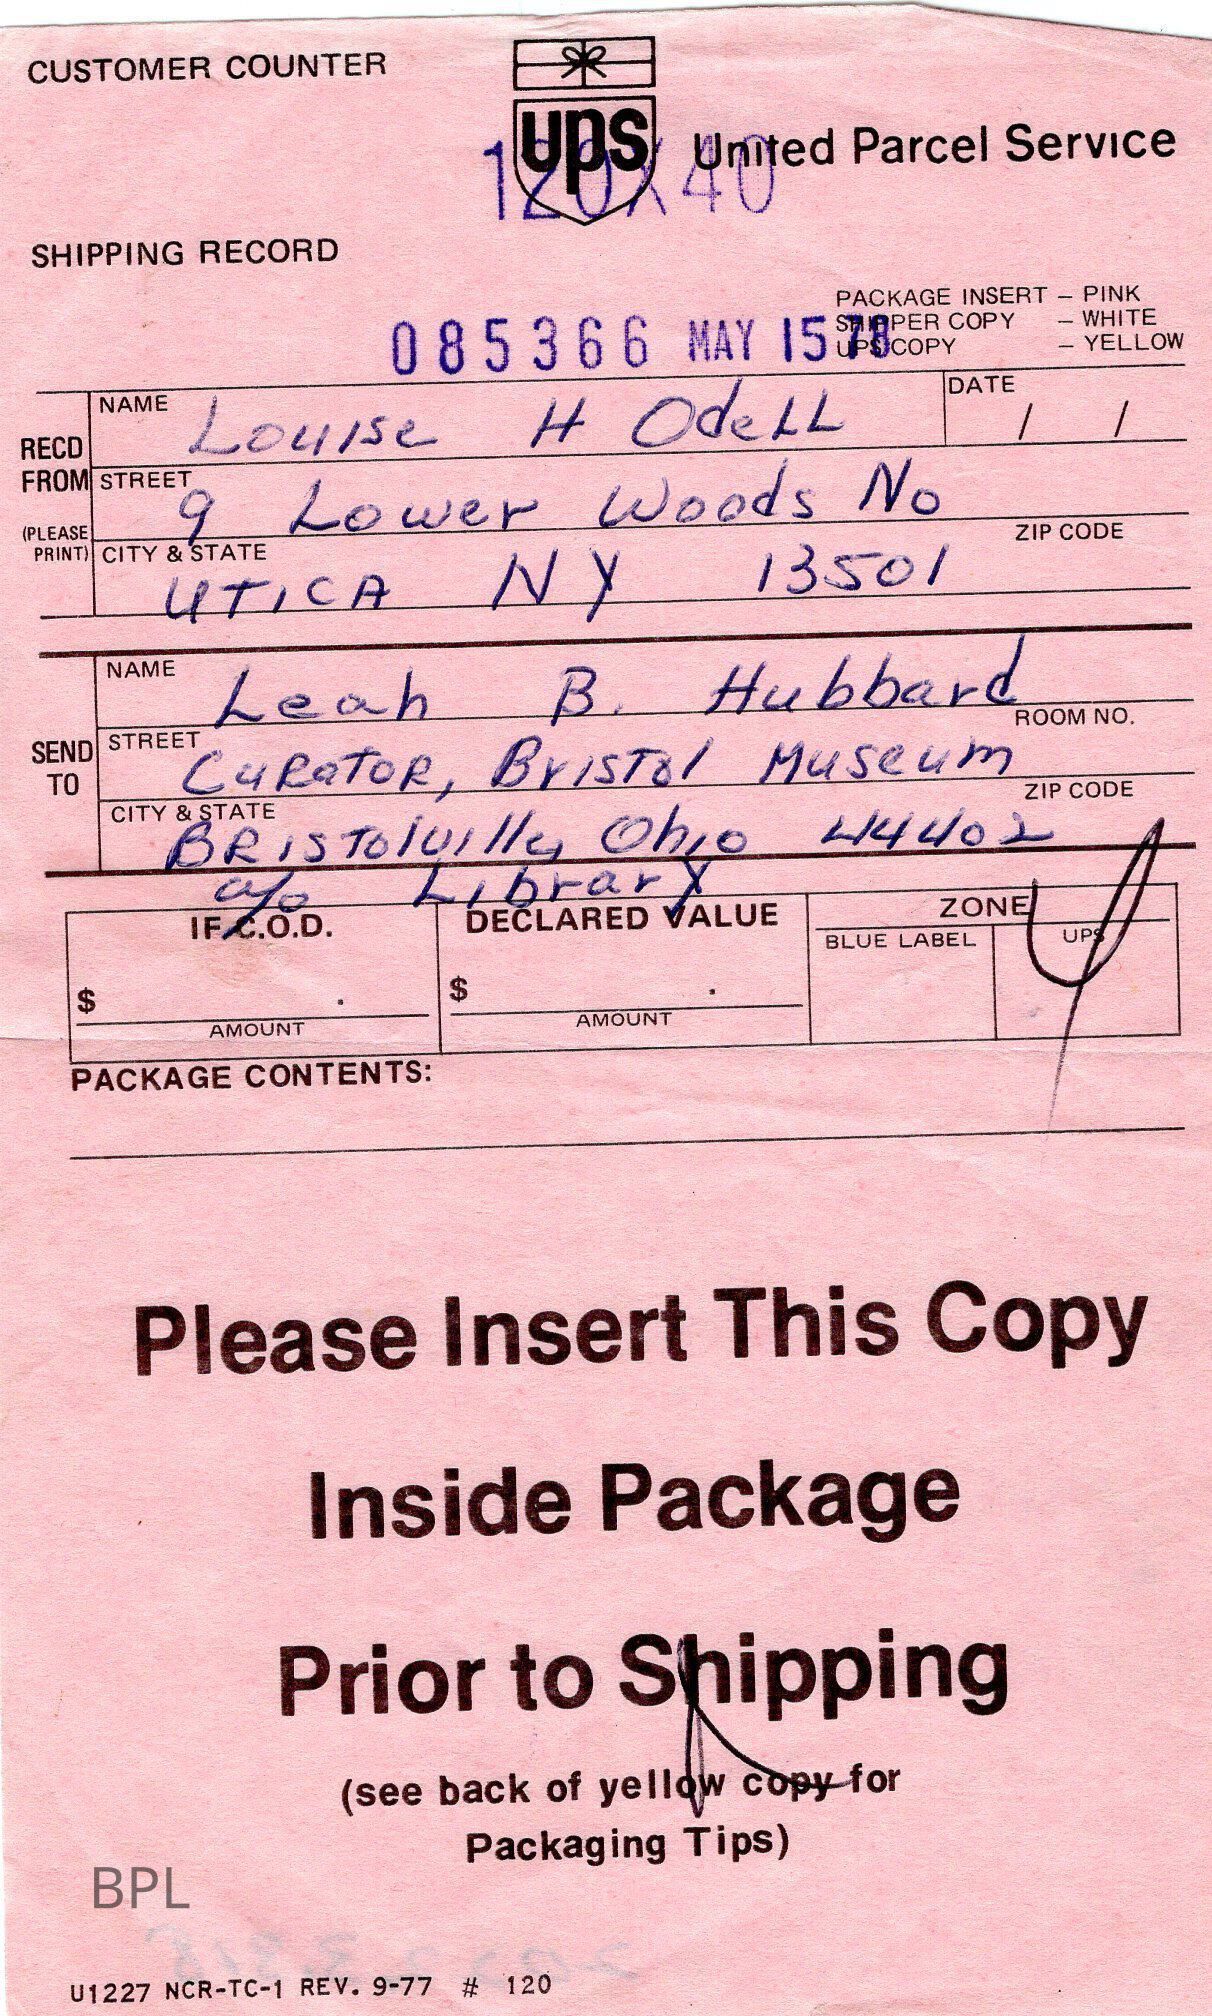 CUSTOMER COUNTER
ups
United Parcel Service
120X40
SHIPPING RECORD
PACKAGE INSERT – PINK
SHIPPER COPY – WHITE
UPS COPY – YELLOW
085366 MAY 15 78
NAME Louise H Odell DATE / /
RECD FROM
STREET 9 Lower Woods No
(PLEASE PRINT)
CITY & STATE UTICA NY ZIP CODE 13501
NAME Leah B. Hubbard
SEND TO
STREET Curator, Bristol Museum ROOM NO.
CITY & STATE Bristolville, Ohio ZIP CODE 44402
c/o Library
IF C.O.D. DECLARED VALUE ZONE
BLUE LABEL UPS
$ . $ .
AMOUNT AMOUNT
PACKAGE CONTENTS:
Please Insert This Copy
Inside Package
Prior to Shipping
(see back of yellow copy for
Packaging Tips)
BPL
U1227 NCR-TC-1 REV. 9-77 # 120